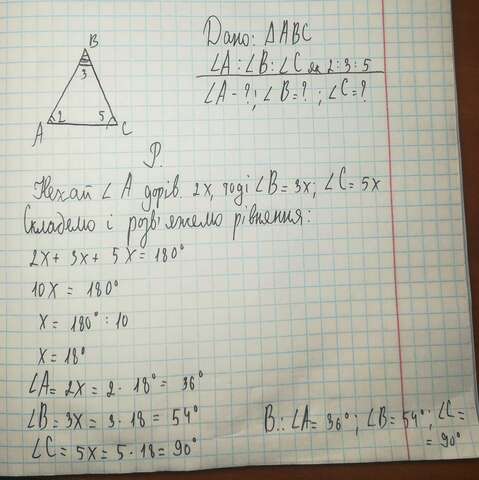 B
3
A 2 5 C
Дано: ΔABC
∠A : ∠B : ∠C як 2 : 3 : 5
∠A - ? ; ∠B = ? ; ∠C = ?
Р.
Нехай ∠ A дорів. 2x, тоді ∠B = 3x; ∠C = 5x
Складемо і розв'яжемо рівнення:
2x + 3x + 5x = 180°
10x = 180°
x = 180° : 10
x = 18°
∠A = 2x = 2 · 18° = 36°
∠B = 3x = 3 · 18 = 54°
∠C = 5x = 5 · 18 = 90°
В.: ∠A = 36° ; ∠B = 54° ; ∠C =
= 90°